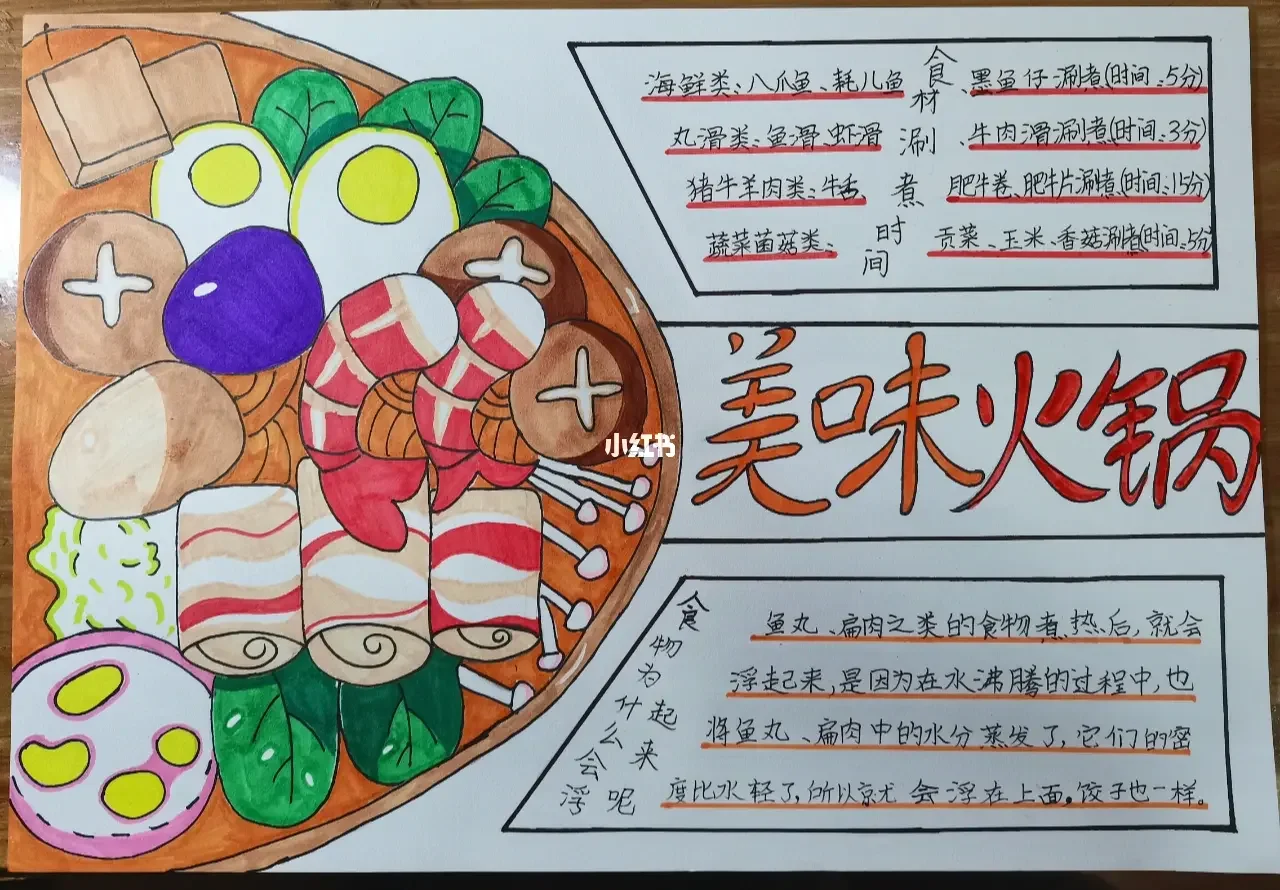 食材涮煮时间
海鲜类:八爪鱼、耗儿鱼、墨鱼仔涮煮(时间:5分)
丸滑类:鱼滑、虾滑、牛肉滑涮煮(时间:3分)
猪牛羊肉类:牛舌 肥牛卷、肥牛片涮煮(时间:15分)
蔬菜菌菇类: 贡菜、玉米、香菇涮煮(时间:5分)
小红书
美味火锅
食物为什么会浮
起来呢
鱼丸、扁肉之类的食物煮热后,就会
浮起来,是因为在水沸腾的过程中,也
将鱼丸、扁肉中的水分蒸发了,它们的密
度比水轻了,所以就会浮在上面。饺子也一样。